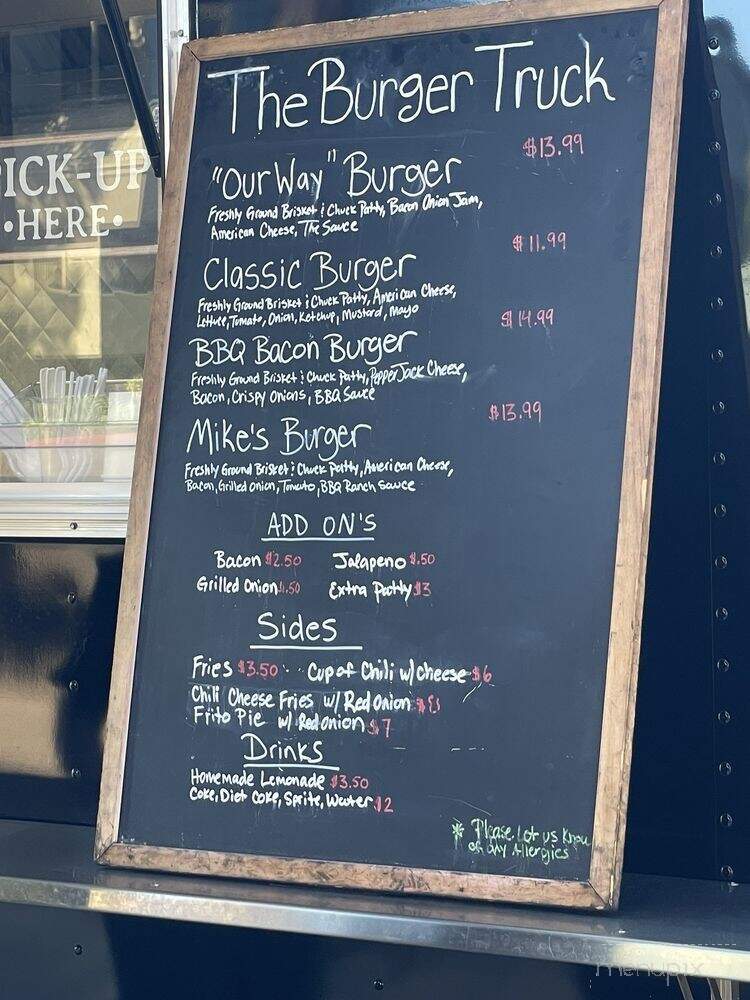 PICK-UP
•HERE•
The Burger Truck
"Our Way" Burger $13.99
Freshly Ground Brisket & Chuck Patty, Bacon Onion Jam,
American Cheese, The Sauce
Classic Burger $11.99
Freshly Ground Brisket & Chuck Patty, American Cheese,
Lettuce, Tomato, Onion, Ketchup, Mustard, Mayo
BBQ Bacon Burger $14.99
Freshly Ground Brisket & Chuck Patty, PepperJack Cheese,
Bacon, Crispy Onions, BBQ Sauce
Mike's Burger $13.99
Freshly Ground Brisket & Chuck Patty, American Cheese,
Bacon, Grilled Onion, Tomato, BBQ Ranch Sauce
ADD ON'S
Bacon $2.50 Jalapeno $.50
Grilled Onion $1.50 Extra Patty $3
Sides
Fries $3.50 Cup of Chili w/ cheese $6
Chili Cheese Fries w/ Red Onion $8
Frito Pie w/ Red onion $7
Drinks
Homemade Lemonade $3.50
Coke, Diet Coke, Sprite, Water $2
* Please Let us know
of any Allergies
menupix